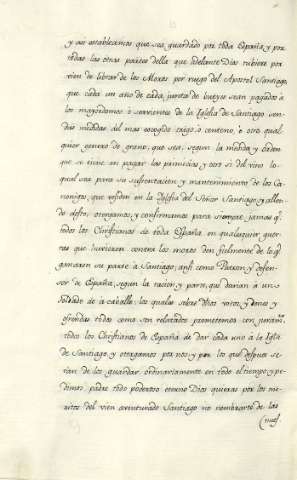 y asi establecamos que sea guardado por toda España, y por
todas las otras partes della que adelante Dios tubiere por
vien de librar de los Moros por ruego del Apostol Santiago,
que cada un año de cada juntas de bueyes sean pagados a
los mayordomos o sarvientes de la Iglesia de Santiago sen-
das medidas del mas escogido trigo, o centeno, o otro qual
quier genero de grano, que sea, segun la medida, y orden
que se tiene en pagar las primicias y otro si del vino lo
qual sea para su sustentacion y mantenimiento de los Ca-
nonigos, que residen en la Iglesia del Señor Santiago, y allen-
de desto, otorgamos, y confirmamos para siempre jamas qe
todos los Christianos de toda España en qualquier guer-
ras que hurieren contra los moros den fielmente de lo qe
ganaren su parte a Santiago, ansi como Patron, y defen-
sor de España, segun la racion y parte, que darian a un
soldado de a caballo, los quales sobre dhos votos, y dones y
ofrendas todas como son relatados prometemos con juramto
todos los Christianos de España de dar cada uno a la Igle.
de Santiago, y otorgamos por nos, y por los que despues se-
rian de los guardar ordinariamente en todo el tiempo, y pe-
dimos padre todo poderoso eterno Dios quieras por los me-
ritos del vien aventurado Santiago no nembrarte de las
nues.